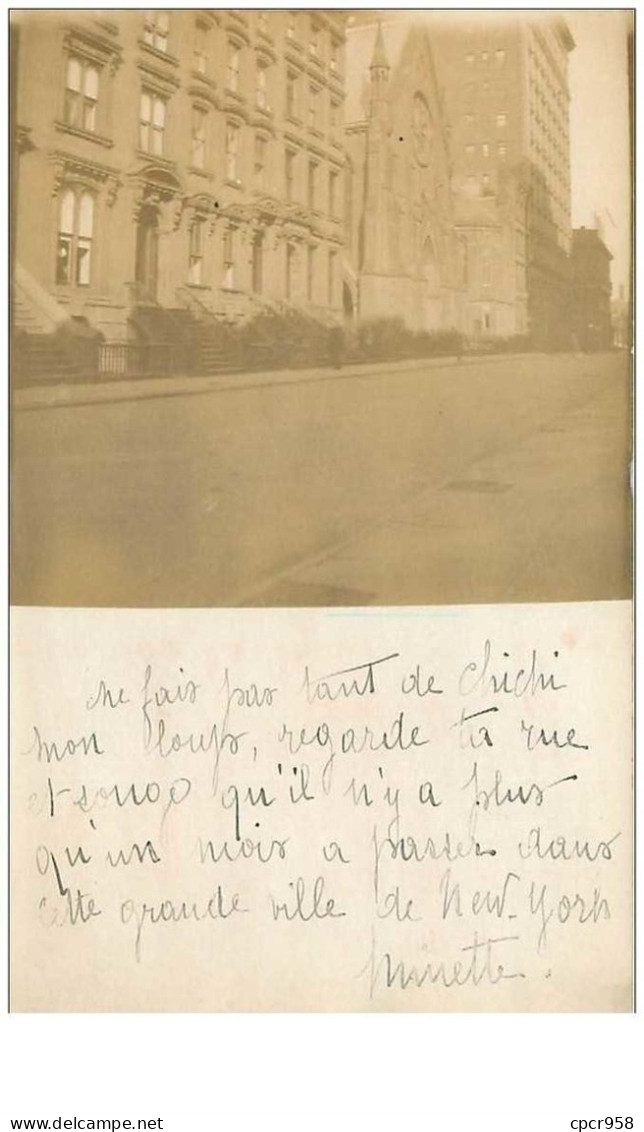 ne fais pas tant de chichi
mon loup, regarde ta rue
et songe qu'il n'y a plus
qu'un mois a passer dans
cette grande ville de New-York
Minette.
delcampe.net
cpcr958